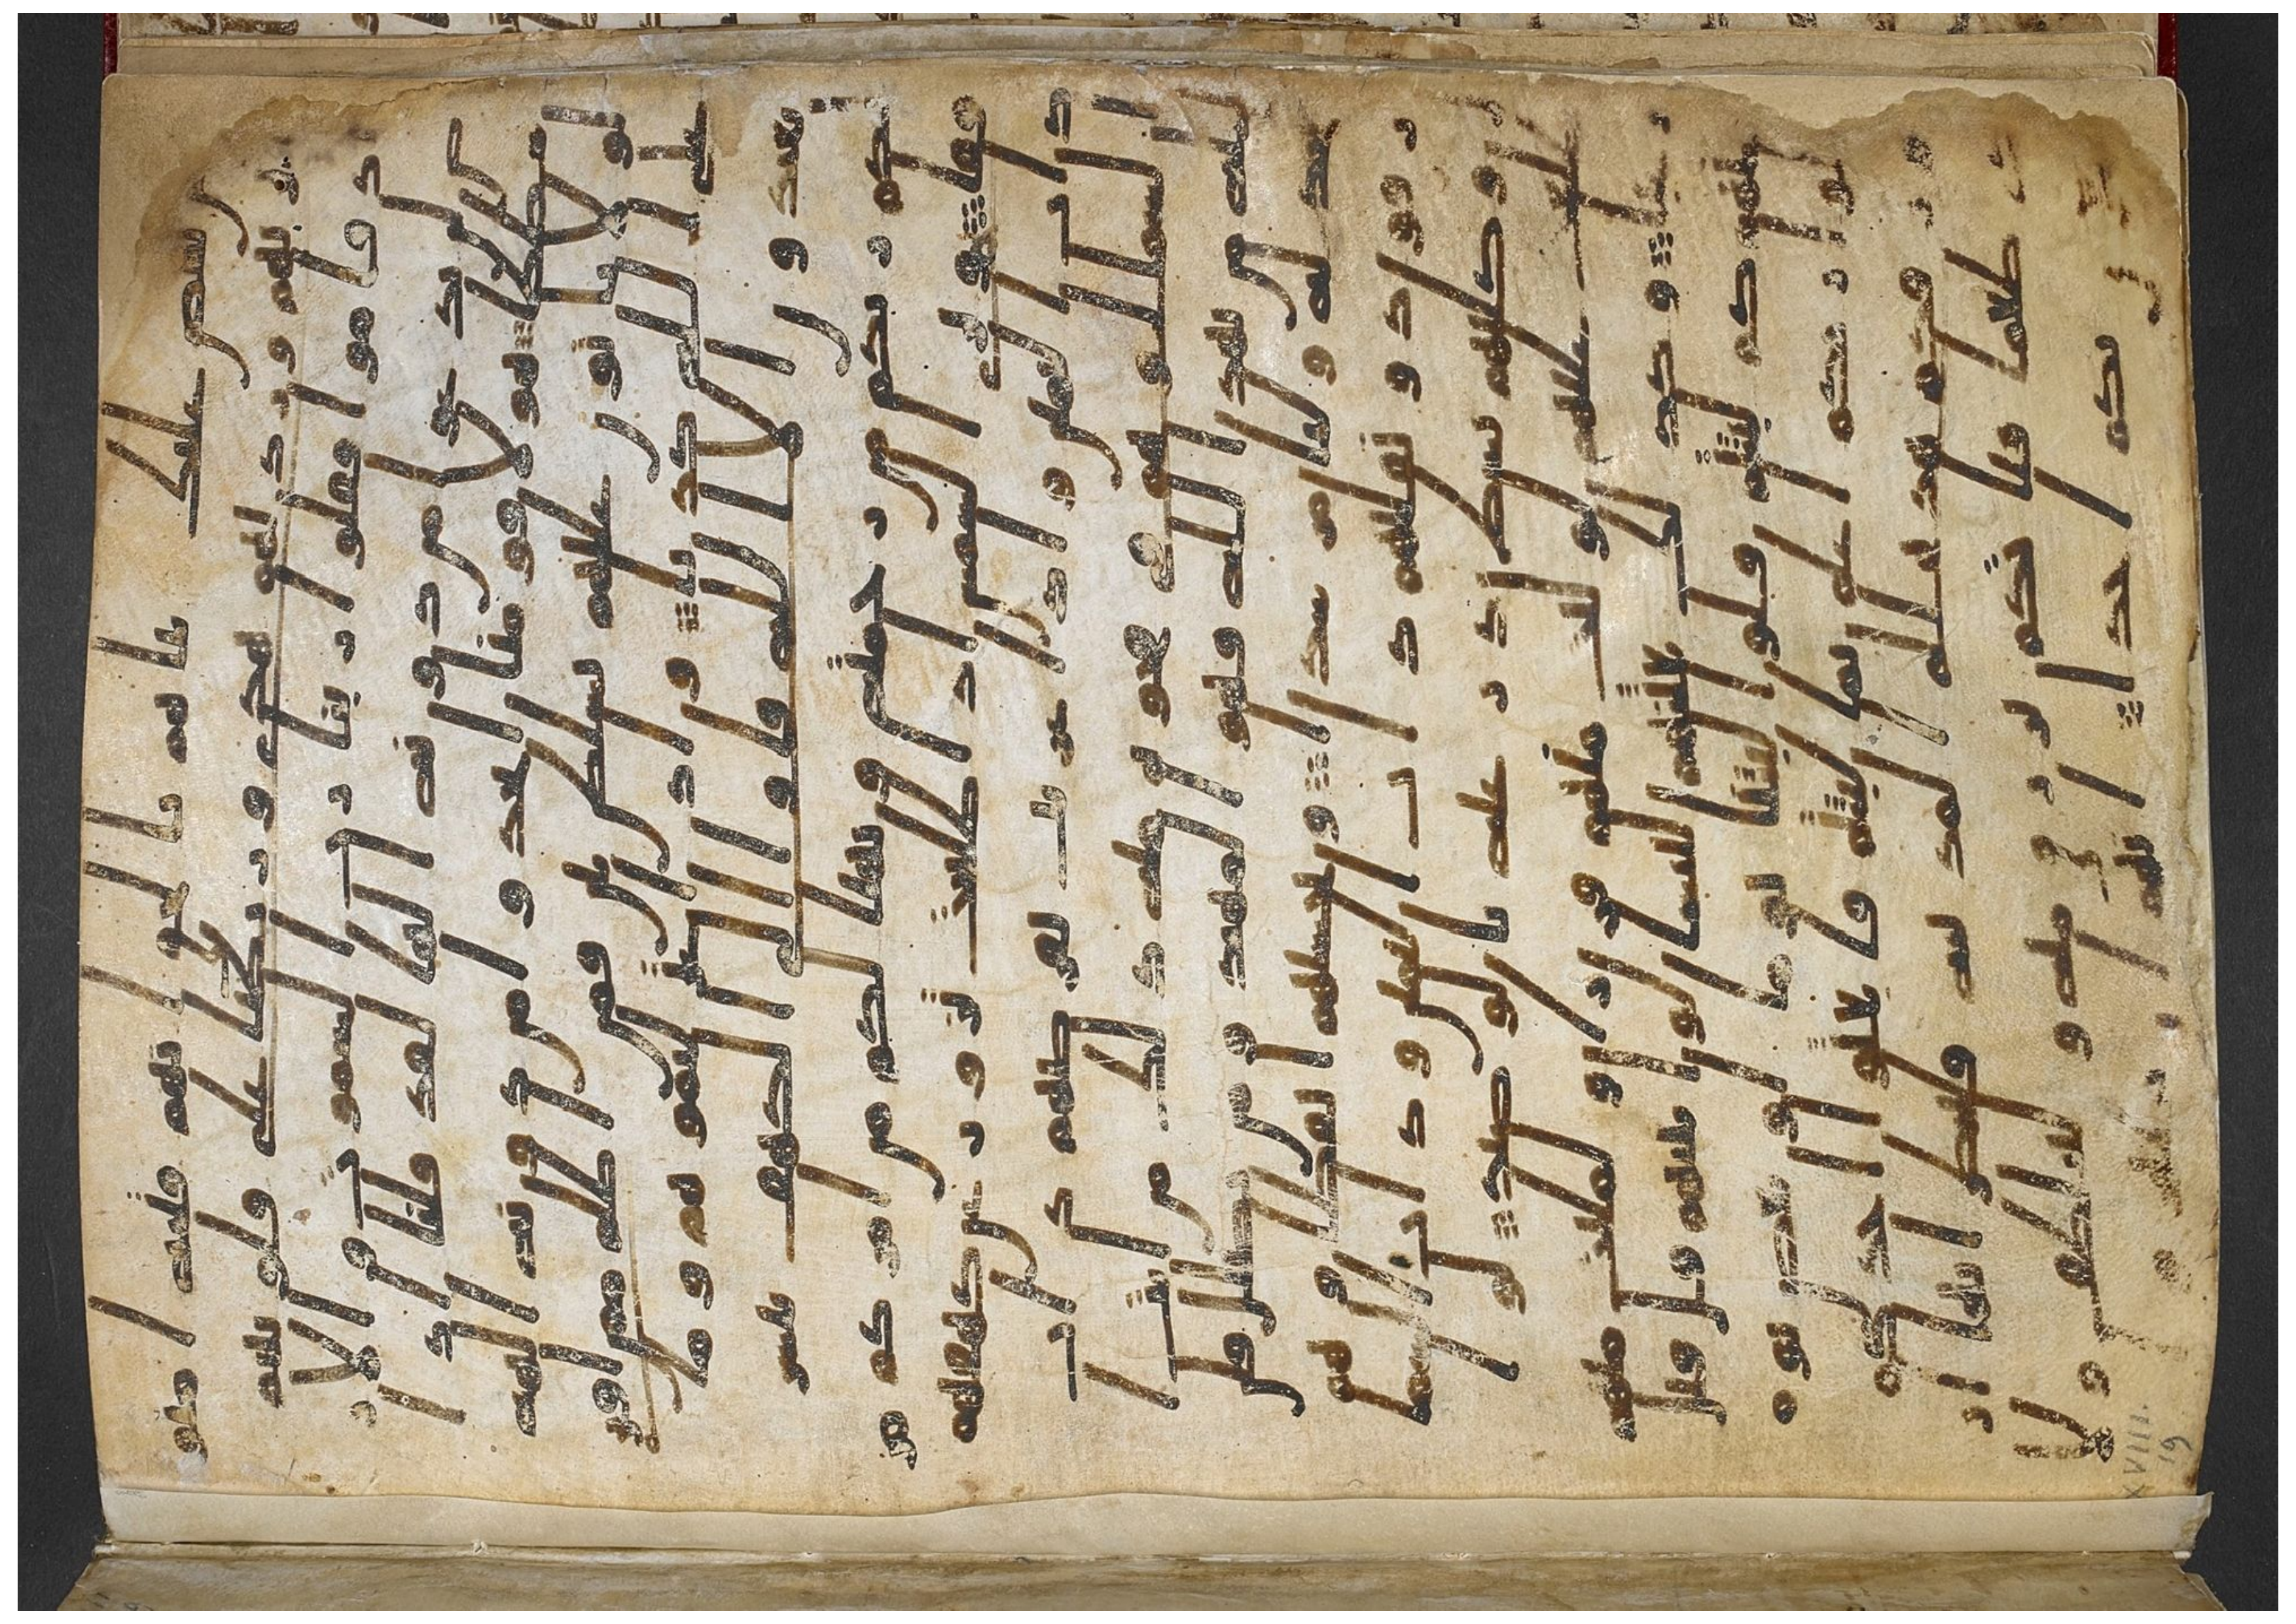 نحن نقص عليك نباهم بالحق انهم فتية امنوا
بربهم وزدنهم هدى وربطنا على قلوبهم
اذ قاموا فقالوا ربنا رب السموت والار
ض لن ندعوا من دونه الها لقد قلنا اذا
شططا هولا قومنا اتخذوا من دونه الهة
لولا ياتون عليهم بسلطن بين فمن اظلم ممن افتر
ى على الله كذبا واذ اعتزلتموهم وما
يعبدون الا الله فاوا الى الكهف ينشر
لكم ربكم من رحمته ويهيى لكم من امركم مر
فقا وترى الشمس اذا طلعت تزور عن كهفهم
ذات اليمين واذا غربت تقرضهم ذات
الشمال وهم في فجوة منه ذلك من ايت ا
لله من يهد الله فهو المهتد ومن يضلل فلن
تجد له وليا مرشدا وتحسبهم ايقاظا وهم
رقود ونقلبهم ذات اليمين وذات الشما
ل وكلبهم بسط ذراعيه بالوصيد لو
اطلعت عليهم لوليت منهم فرارا ولملت
منهم رعبا وكذلك بعثنهم ليتسالوا بينهم قل
قايل منهم كم لبثتم قالوا لبثنا يوما او بعض يو
م قالوا ربكم اعلم بما لبثتم فابعثوا احدكم
بورقكم هذه الى المدينة فلينظر ايها ا
زكى طعاما فلياتكم برزق منه وليتلطف ولا
يشعرن بكم احدا انهم
XVIII
19